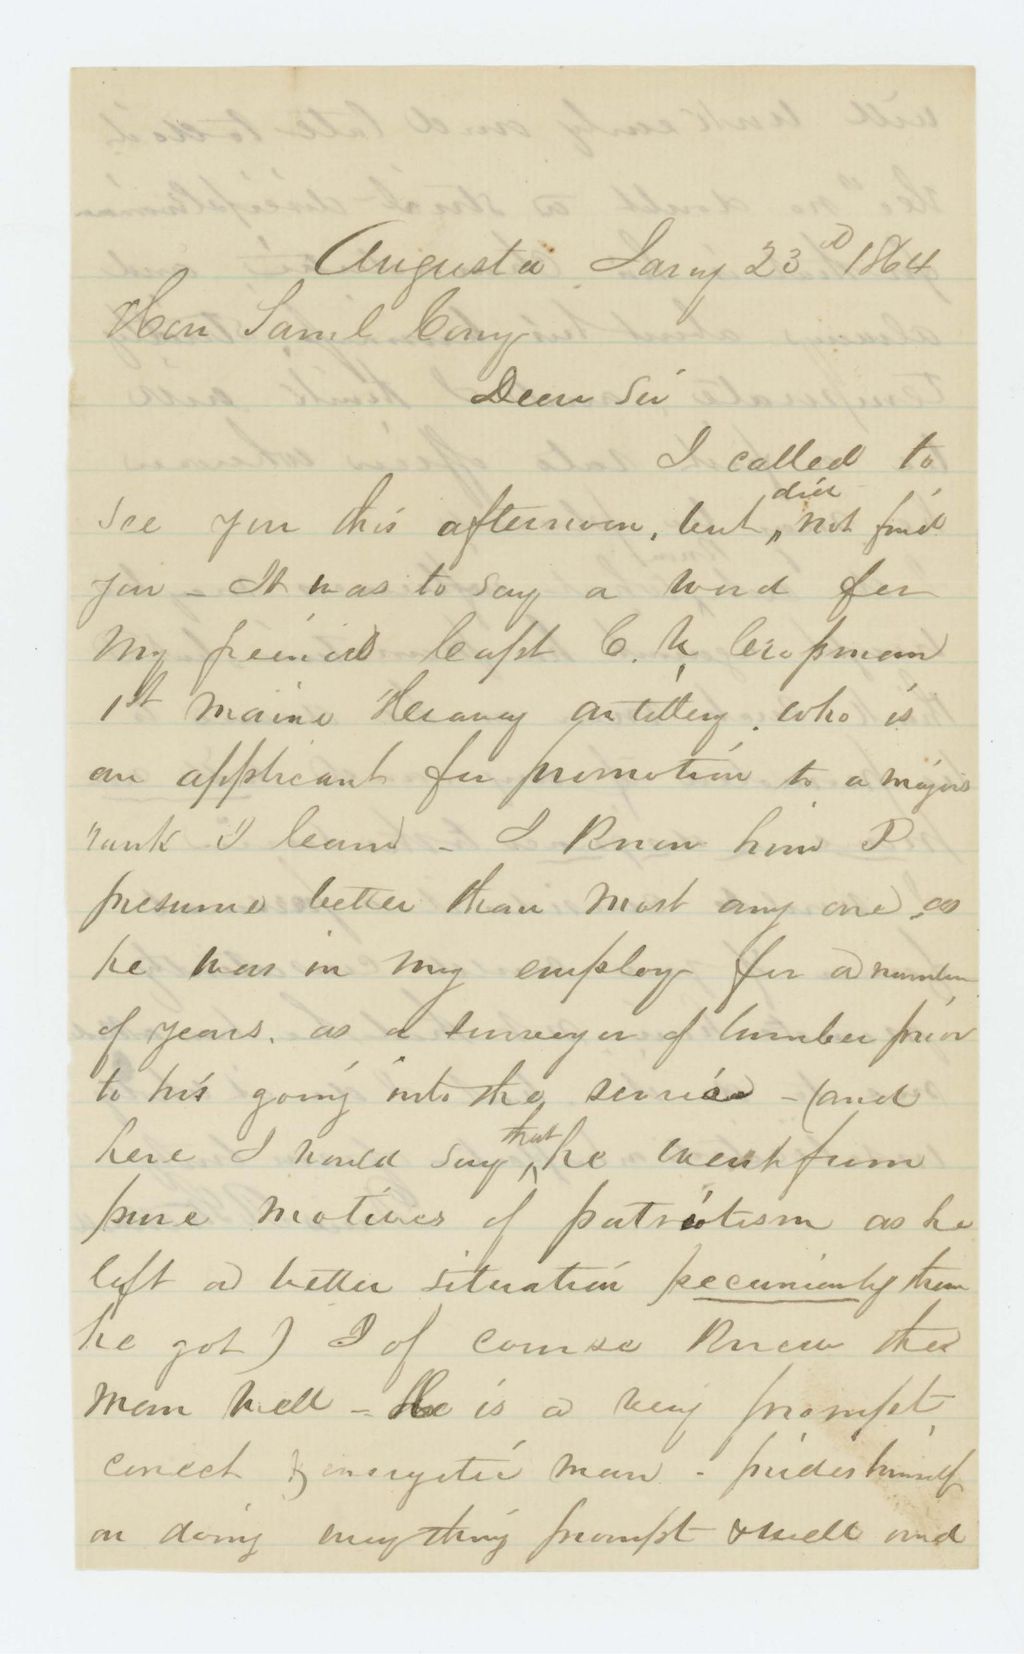 Augusta Jany 23d 1864
Hon Saml Cony
Dear Sir
I called to
see you this afternoon, but did not find
you - It was to say a word for
my freind Capt C. W. Crossman
1st Maine Heavey Artillery. who is
an applicant for promotion to a majors
rank I learn - I know him I
presume better than most any one, as
he was in my employ for a number
of years, as a surveyor of lumber prior
to his going into the service - (and
here I would say that he went from
pure motives of patriotism as he
left a better situation pecuniarily than
he got) I of course know the
man well - He is a very prompt,
correct & energetic man - prides himself
on doing anything prompt & well and